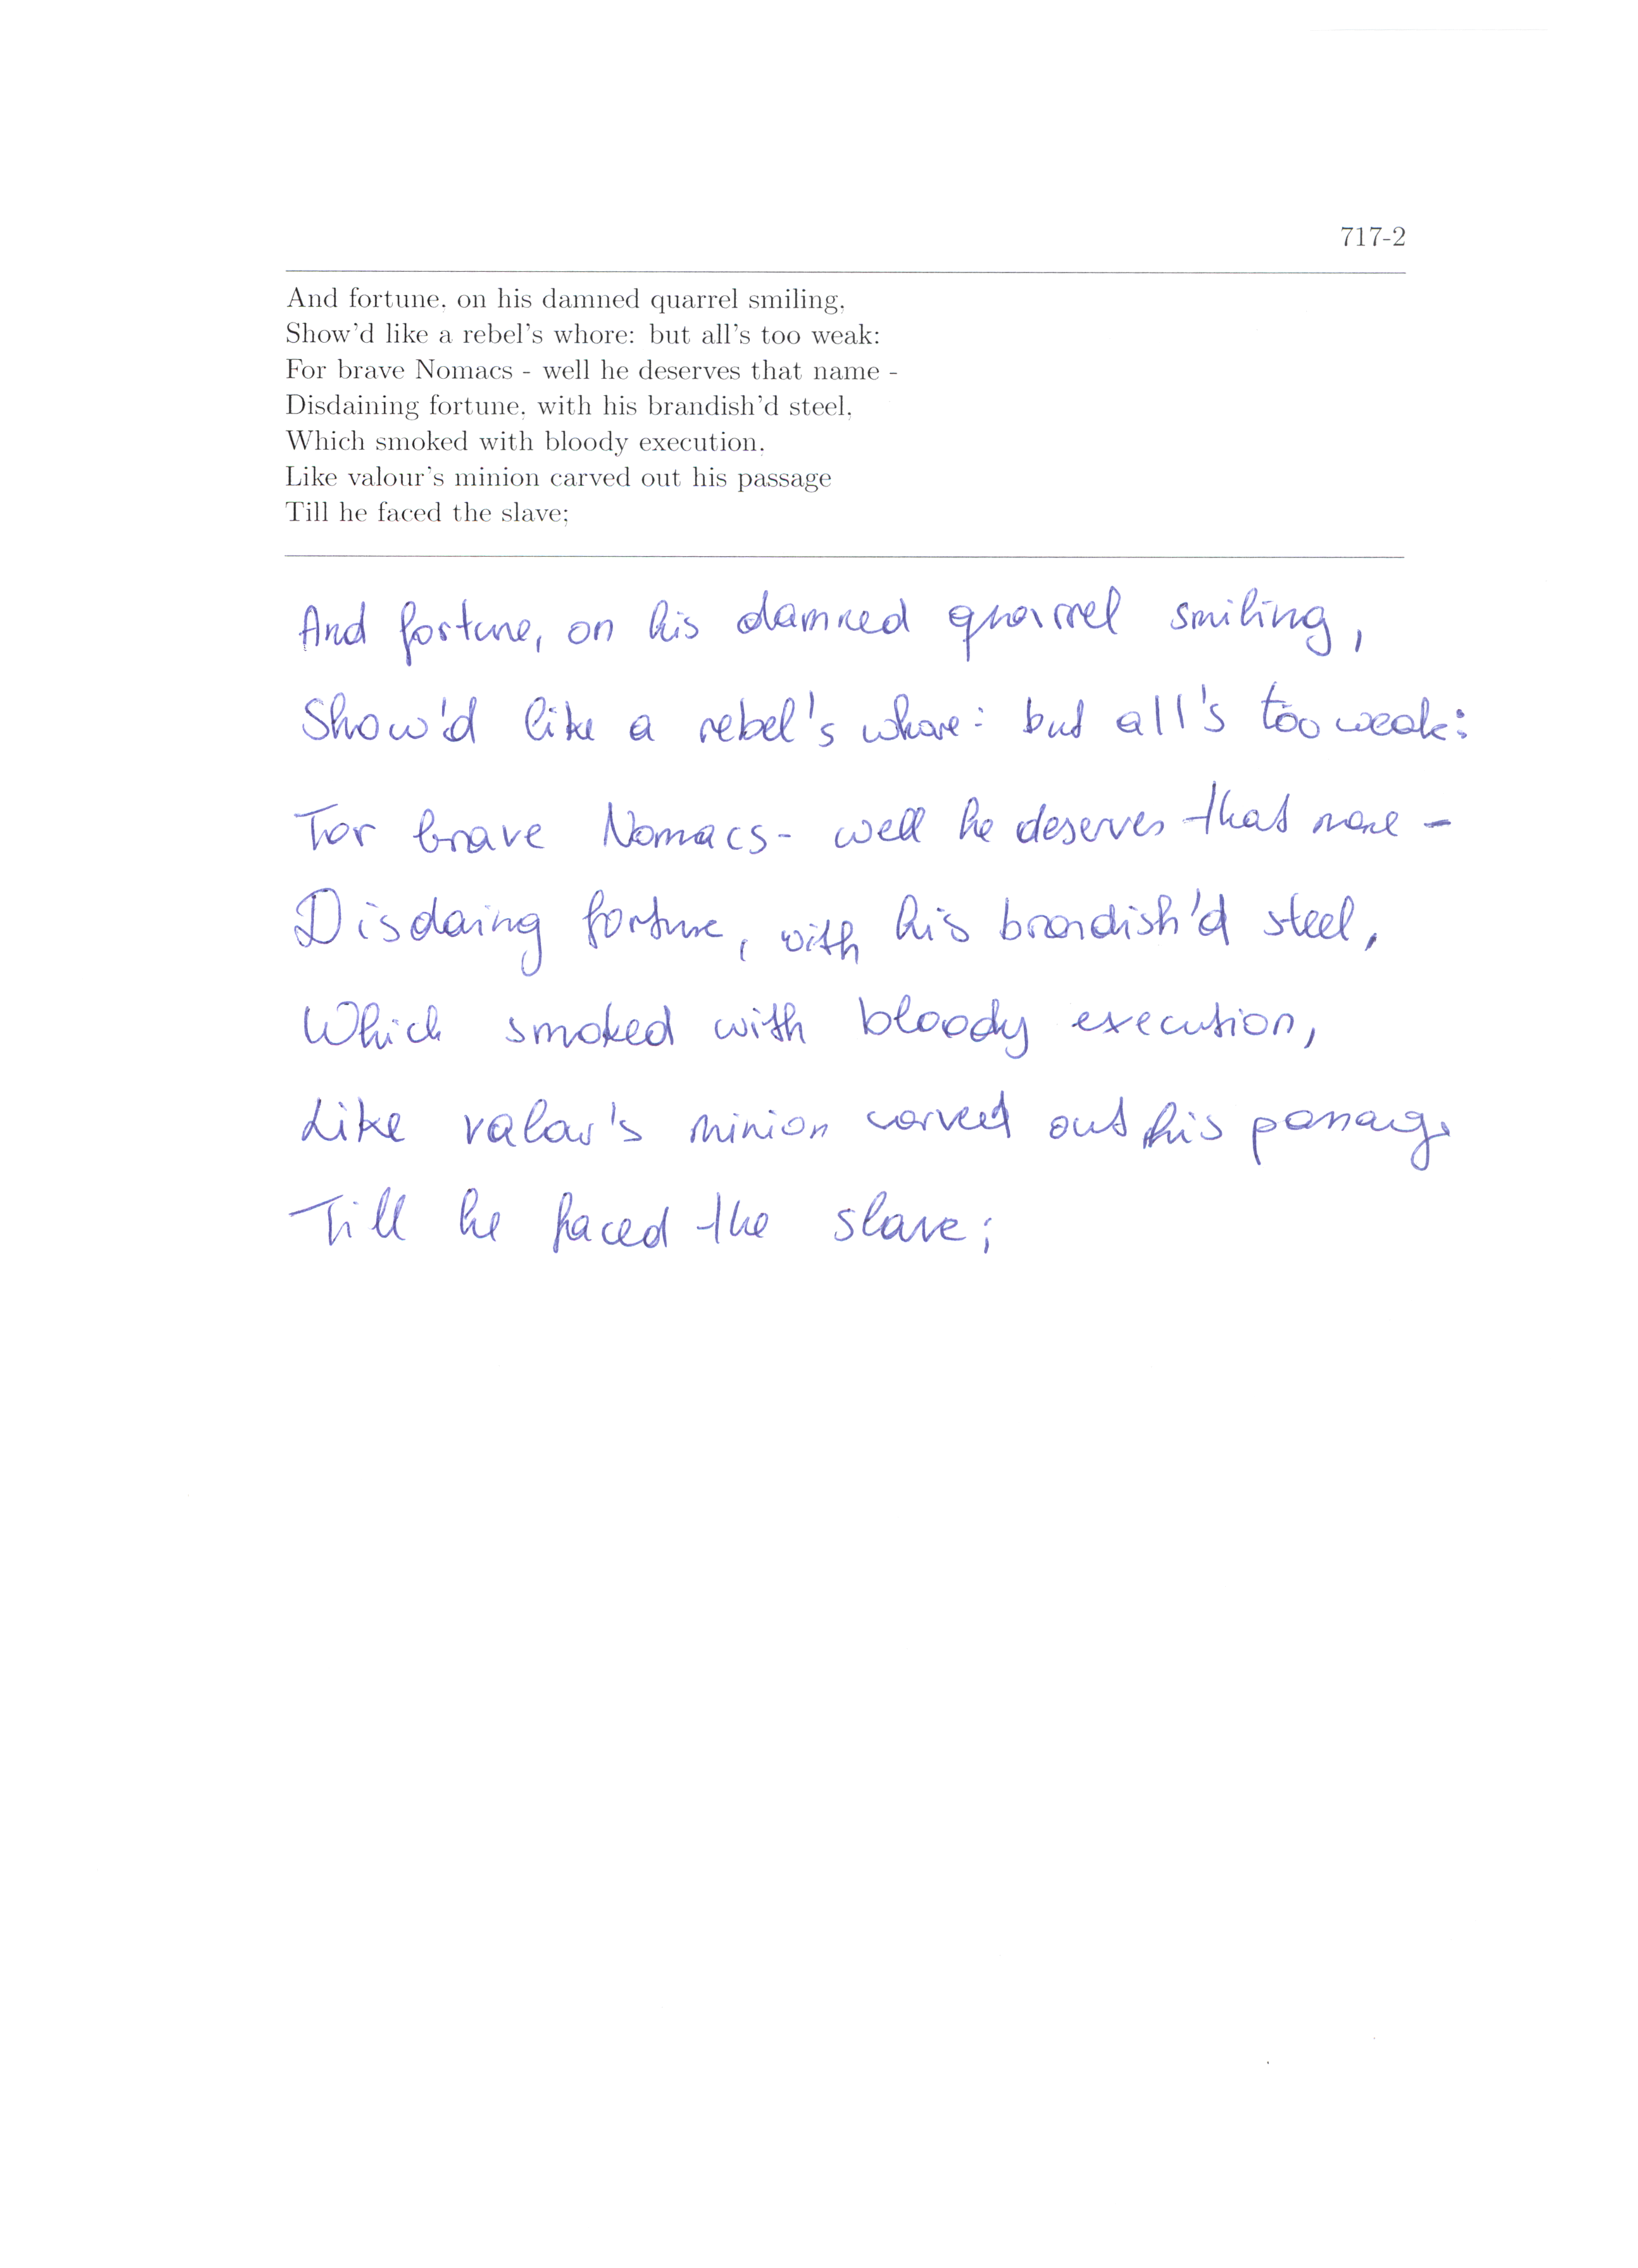 717-2
And fortune, on his damned quarrel smiling,
Show'd like a rebel's whore: but all's too weak:
For brave Nomacs - well he deserves that name -
Disdaining fortune, with his brandish'd steel,
Which smoked with bloody execution,
Like valour's minion carved out his passage
Till he faced the slave;
And fortune, on his damned quarrel smiling,
Show'd like a rebel's whore: but all's too weak:
For brave Nomacs - well he deserves that name -
Disdaing fortune, with his brandish'd steel,
Which smoked with bloody execution,
Like valour's minion carved out his passage
Till he faced the slave;